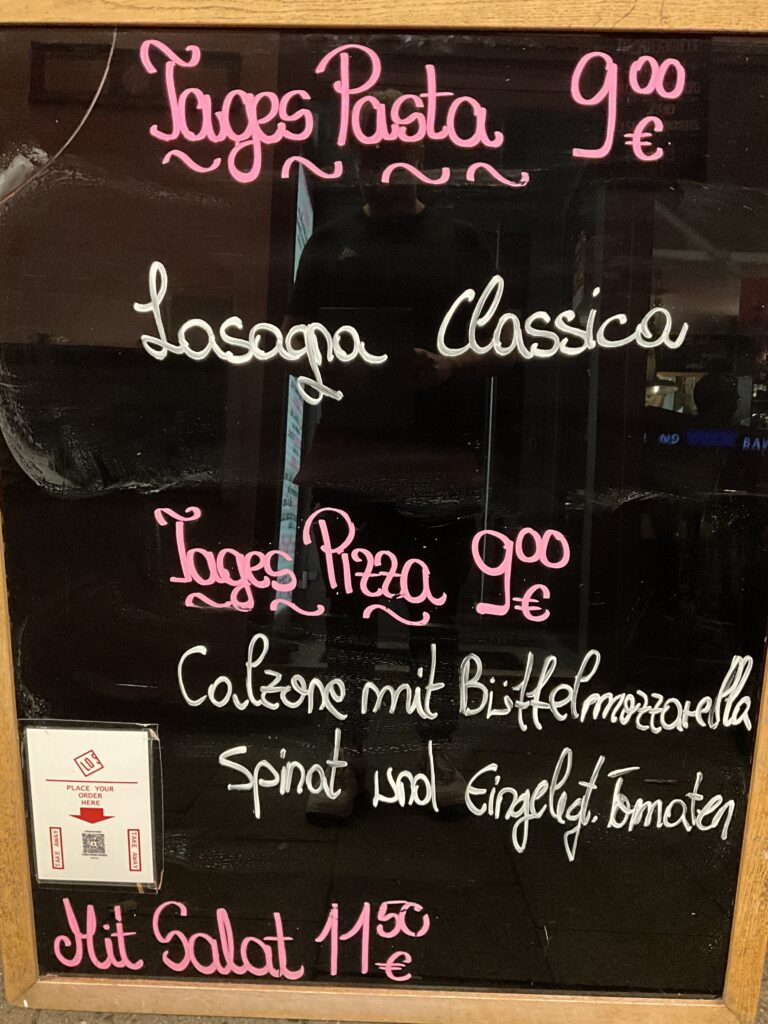 Tages Pasta 9⁰⁰ €
Lasagna Classica
Tages Pizza 9⁰⁰ €
Calzone mit Büffelmozzarella
Spinat und Eingelegt. Tomaten
LOS
PLACE YOUR
ORDER
HERE
TAKE AWAY
TAKE AWAY
Mit Salat 11⁵⁰ €